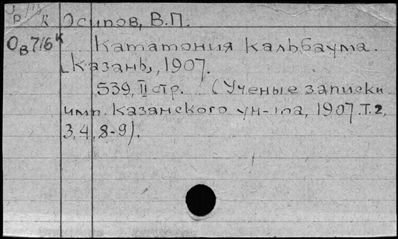 Р К Осипов, В.П.
Ов716к Кататония Кальбаума.
Казань, 1907.
539, II стр. (Ученые записки
имп. Казанского ун-та, 1907. Т. 2,
3, 4, 8-9).